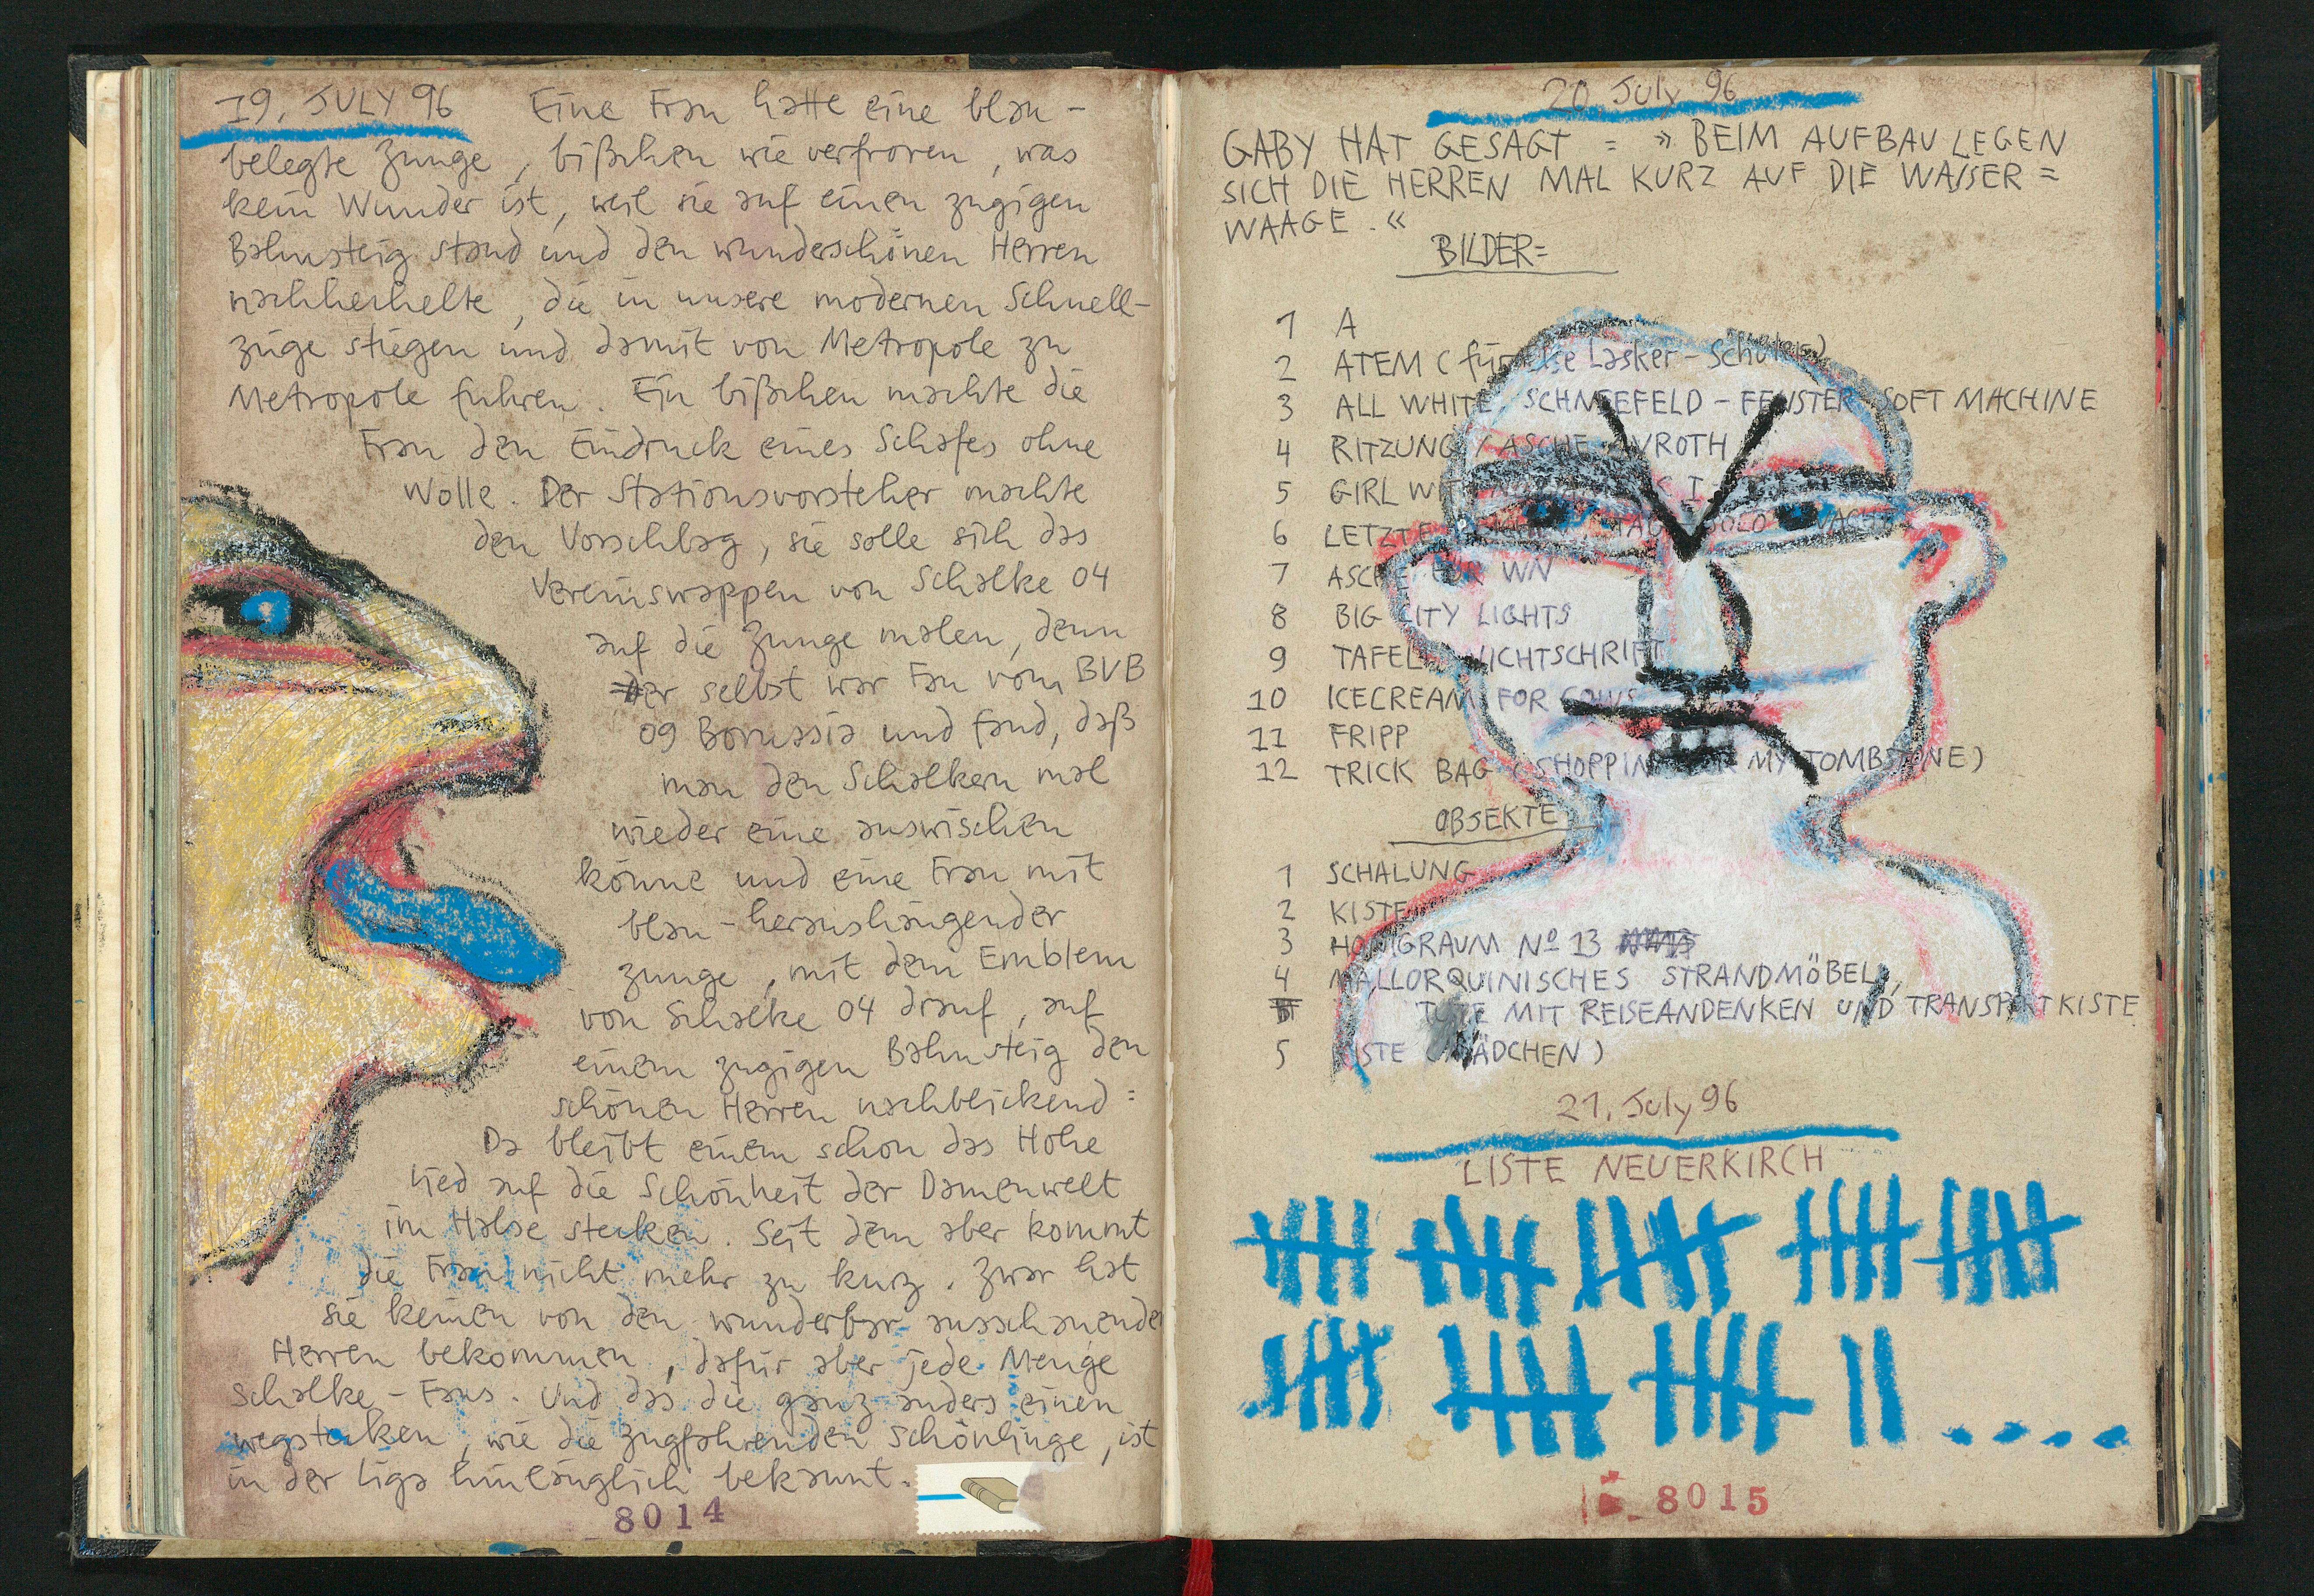 19. JULY 96 Eine Frau hatte eine blau-
belegte Zunge, bißchen wie verfroren, was
kein Wunder ist, weil sie auf einen zugigen
Bahnsteig stand und den wunderschönen Herren
nachhechelte, die in unsere modernen Schnell-
züge stiegen und damit von Metropole zu
Metropole fuhren. Ein bißchen machte die
Frau den Eindruck eines Schafes ohne
Wolle. Der Stationsvorsteher machte
den Vorschlag, sie solle sich das
Vereinswappen von Schalke 04
auf die Zunge malen, denn
der selbst war Fan vom BVB
09 Borussia und fand, daß
man den Schalkern mal
wieder eine auswischen
könne und eine Frau mit
blau-heraushängender
Zunge, mit dem Emblem
von Schalke 04 drauf, auf
einem zugigen Bahnsteig den
schönen Herren nachblickend:
Da bleibt einem schon das Hohe
Lied auf die Schönheit der Damenwelt
im Halse stecken. Seit dem aber kommt
die Frau nicht mehr zu kurz. Zwar hat
sie keinen von den wunderbar ausschauenden
Herren bekommen, dafür aber jede Menge
Schalke-Fans. Und das die ganz anders einen
wegstecken, wie die zugfahrenden Schönlinge, ist
in der Liga hinlänglich bekannt.
8014
20 July 96
GABY HAT GESAGT = » BEIM AUFBAU LEGEN
SICH DIE HERREN MAL KURZ AUF DIE WASSER=
WAAGE. «
BILDER=
1 A
2 ATEM (für Else Lasker-Schüler)
3 ALL WHITE, SCHNEEFELD-FENSTER SOFT MACHINE
4 RITZUNG / ASCHE AVROTH
5 GIRL I
6 LETZTE SOLO
7 ASCHE FÜR WN
8 BIG CITY LIGHTS
9 TAFEL NICHTSCHRIFT
10 ICECREAM FOR COWS
11 FRIPP
12 TRICK BAG (SHOPPING FOR MY TOMBSTONE)
OBJEKTE
1 SCHALUNG
2 KISTE
3 HONIGRAUM Nº 13
4 MALLORQUINISCHES STRANDMÖBEL,
TÜTE MIT REISEANDENKEN UND TRANSPORTKISTE
5 KISTE (MÄDCHEN)
21. July 96
LISTE NEUERKIRCH
8015